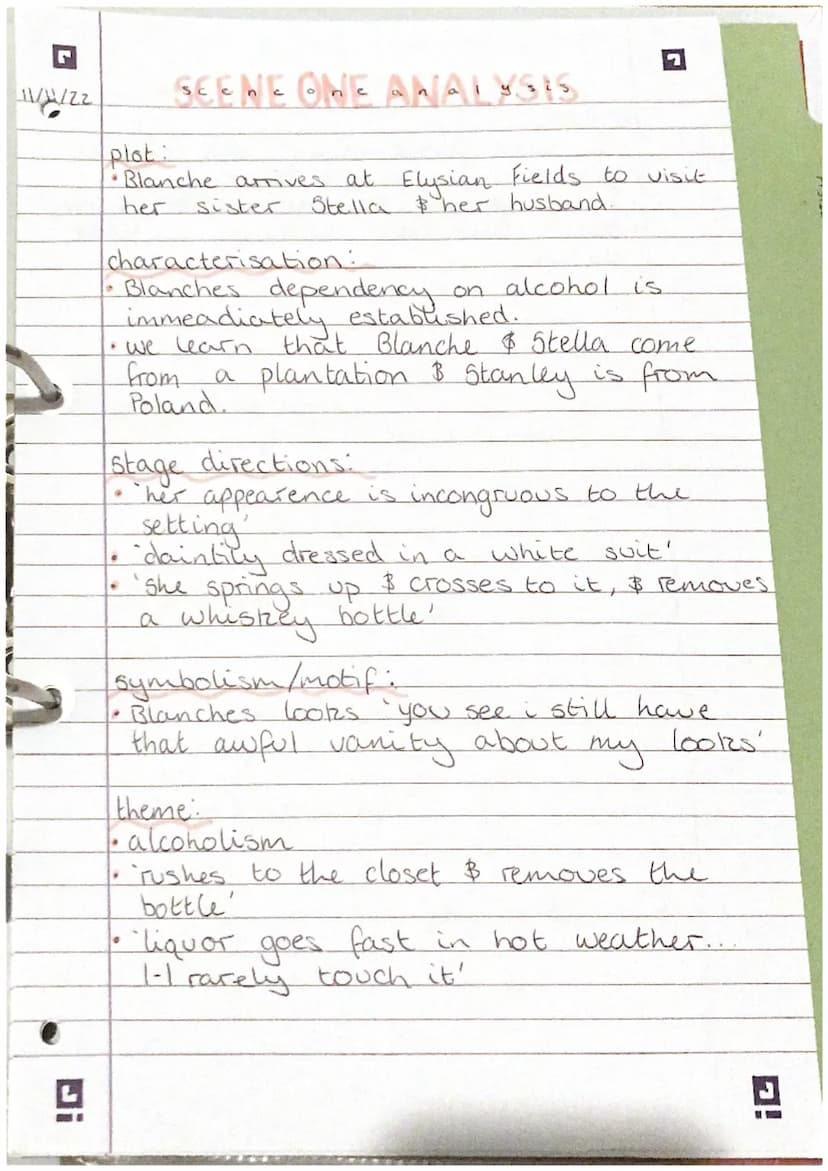 SCENE ONE ANALYSIS
scene one analysis
11/11/22
plot:
• Blanche arrives at Elysian Fields to visit
her sister Stella & her husband.
characterisation:
• Blanches dependency on alcohol is
immeadiately established.
• we learn that Blanche & Stella come
from a plantation & Stanley is from
Poland.
stage directions:
• 'her appearence is incongruous to the
setting'
• 'daintily dressed in a white suit'
• 'she springs up & crosses to it, & removes
a whiskey bottle'
symbolism/motif:
• Blanches looks 'you see i still have
that awful vanity about my looks'
theme:
• alcoholism
• 'rushes to the closet & removes the
bottle'
• 'liquor goes fast in hot weather...
I-I rarely touch it'